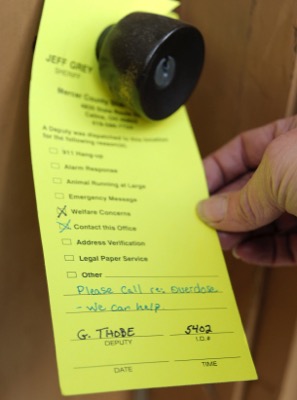 JEFF GREY
SHERIFF
Mercer County
A Deputy was dispatched to this location
for the following reason(s):
911 Hang-up
Alarm Response
Animal Running at Large
Emergency Message
Welfare Concerns
Contact this Office
Address Verification
Legal Paper Service
Other
Please Call re: Overdose
- We can help
G. THOBE 5402
DEPUTY I.D.#
DATE TIME